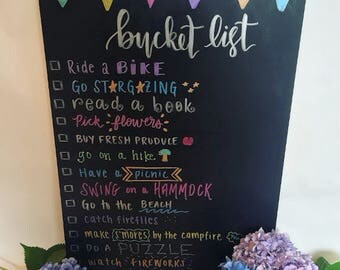 bucket list
Ride a BIKE
GO STARGAZING
read a book
Pick flowers
BUY FRESH PRODUCE
go on a hike
Have a picnic
SWING on a HAMMOCK
Go to the BEACH
catch fireflies
make s'mores by the campfire
DO A PUZZLE
watch FIREWORKS